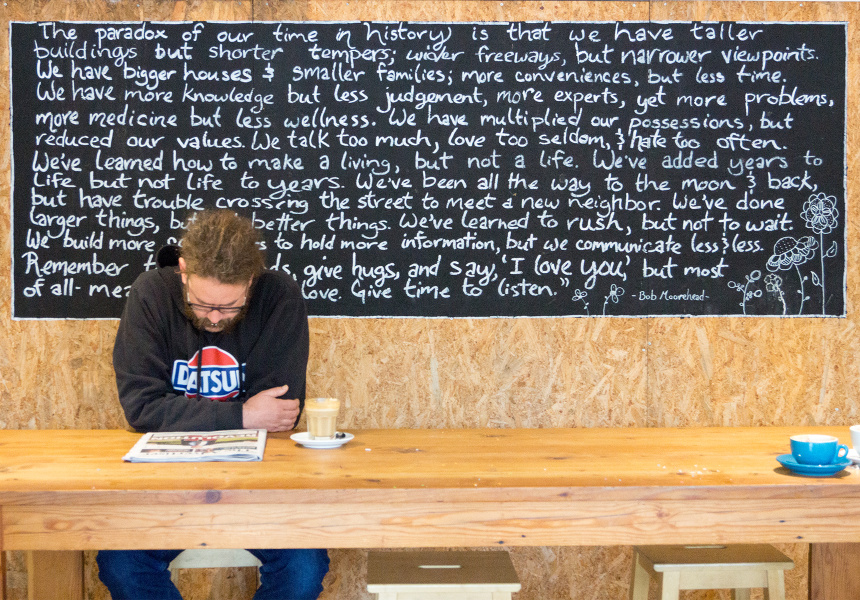 The paradox of our time in history is that we have taller
buildings but shorter tempers; wider freeways, but narrower viewpoints.
We have bigger houses & smaller families; more conveniences, but less time.
We have more knowledge but less judgement, more experts, yet more problems,
more medicine but less wellness. We have multiplied our possessions, but
reduced our values. We talk too much, love too seldom, & hate too often.
We've learned how to make a living, but not a life. We've added years to
life but not life to years. We've been all the way to the moon & back,
but have trouble crossing the street to meet a new neighbor. We've done
larger things, but better things. We've learned to rush, but not to wait.
We build more to hold more information, but we communicate less & less.
Remember give hugs, and say, 'I love you,' but most
of all- love. Give time to listen."
-Bob Moorehead-
DATSUN